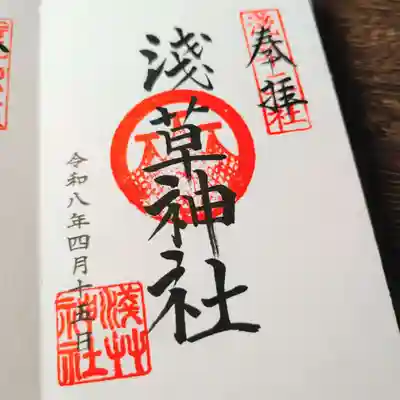 奉拝
浅草神社
令和八年四月十五日
浅草神社